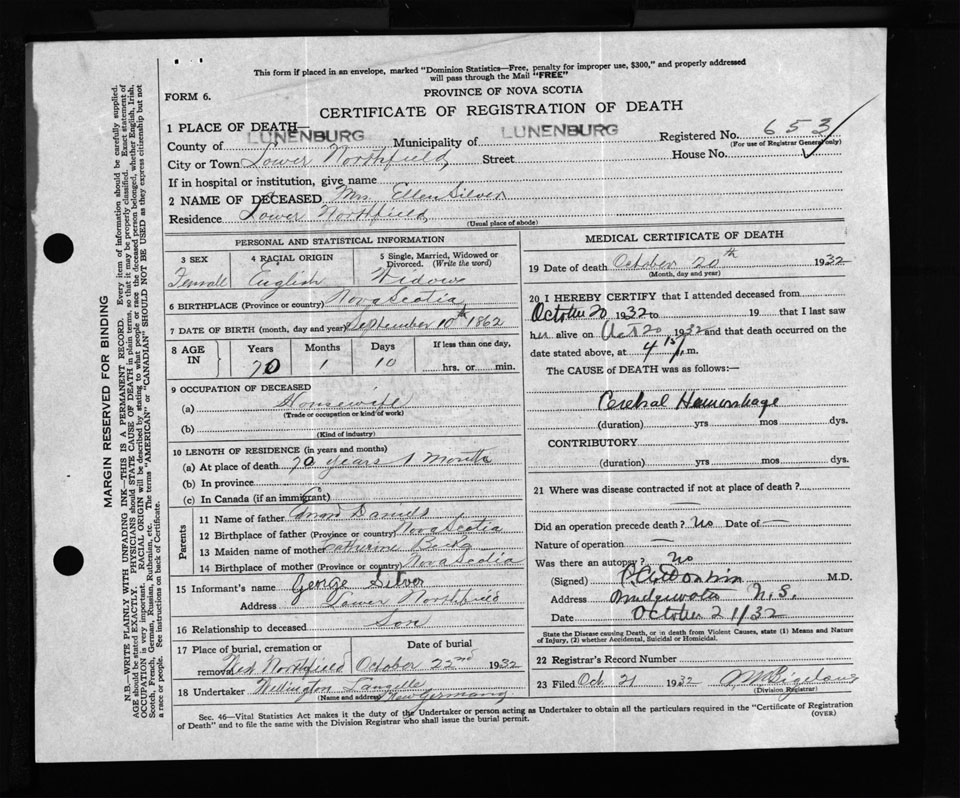 This form if placed in an envelope, marked "Dominion Statistics—Free, penalty for improper use, $300," and properly addressed
will pass through the Mail "FREE"
FORM 6.
PROVINCE OF NOVA SCOTIA
CERTIFICATE OF REGISTRATION OF DEATH
1 PLACE OF DEATH—
County of LUNENBURG Municipality of LUNENBURG Registered No. 653
(For use of Registrar General only)
City or Town Lower Northfield, Street House No.
If in hospital or institution, give name
2 NAME OF DECEASED Mrs Ellen Silver
Residence Lower Northfield
(Usual place of abode)
PERSONAL AND STATISTICAL INFORMATION
3 SEX 4 RACIAL ORIGIN 5 Single, Married, Widowed or Divorced. (Write the word)
Femall English Widow
6 BIRTHPLACE (Province or country) Nova Scotia
7 DATE OF BIRTH (month, day and year) September 10th 1862
8 AGE IN Years Months Days If less than one day,
70 1 10 hrs. or min.
9 OCCUPATION OF DECEASED
(a) Housewife
(Trade or occupation or kind of work)
(b)
(Kind of industry)
10 LENGTH OF RESIDENCE (in years and months)
(a) At place of death 70 years 1 month
(b) In province
(c) In Canada (if an immigrant)
Parents
11 Name of father Daniels
12 Birthplace of father (Province or country) Nova Scotia
13 Maiden name of mother Catherine
14 Birthplace of mother (Province or country) Nova Scotia
15 Informant's name George Silver
Address Lower Northfield
16 Relationship to deceased Son
17 Place of burial, cremation or removal Date of burial
West Northfield October 22nd 1932
18 Undertaker Wellington Langille
(Name and address) New Germany
MEDICAL CERTIFICATE OF DEATH
19 Date of death October 20th 1932
(Month, day and year)
20 I HEREBY CERTIFY that I attended deceased from
October 20 1932 to 19 that I last saw
her alive on Oct 20 1932 and that death occurred on the
date stated above, at 4 15 P.m.
The CAUSE of DEATH was as follows:—
Cerebral Hemorrhage
(duration) yrs mos dys.
CONTRIBUTORY
(duration) yrs mos dys.
21 Where was disease contracted if not at place of death?
Did an operation precede death? No Date of —
Nature of operation —
Was there an autopsy? No
(Signed) M.D.
Address Bridgewater N.S.
Date October 21/32
State the Disease causing Death, or in death from Violent Causes, state (1) Means and Nature
of Injury, (2) whether Accidental, Suicidal or Homicidal.
22 Registrar's Record Number
23 Filed Oct 21 1932
(Division Registrar)
Sec. 46—Vital Statistics Act makes it the duty of the Undertaker or person acting as Undertaker to obtain all the particulars required in the "Certificate of Registration
of Death" and to file the same with the Division Registrar who shall issue the burial permit.
(OVER)
MARGIN RESERVED FOR BINDING
N.B.—WRITE PLAINLY WITH UNFADING INK—THIS IS A PERMANENT RECORD. Every item of information should be carefully supplied.
AGE should be stated EXACTLY. PHYSICIANS should STATE CAUSE OF DEATH in plain terms, so that it may be properly classified. Exact statement of
OCCUPATION is very important. RACIAL ORIGIN will be described by stating to what people or race the deceased person belonged, whether English, Irish,
Scotch, French, German, Russian, Ruthenian, etc. The terms "AMERICAN" or "CANADIAN" SHOULD NOT BE USED as they express citizenship but not
a race or people. See instructions on back of Certificate.